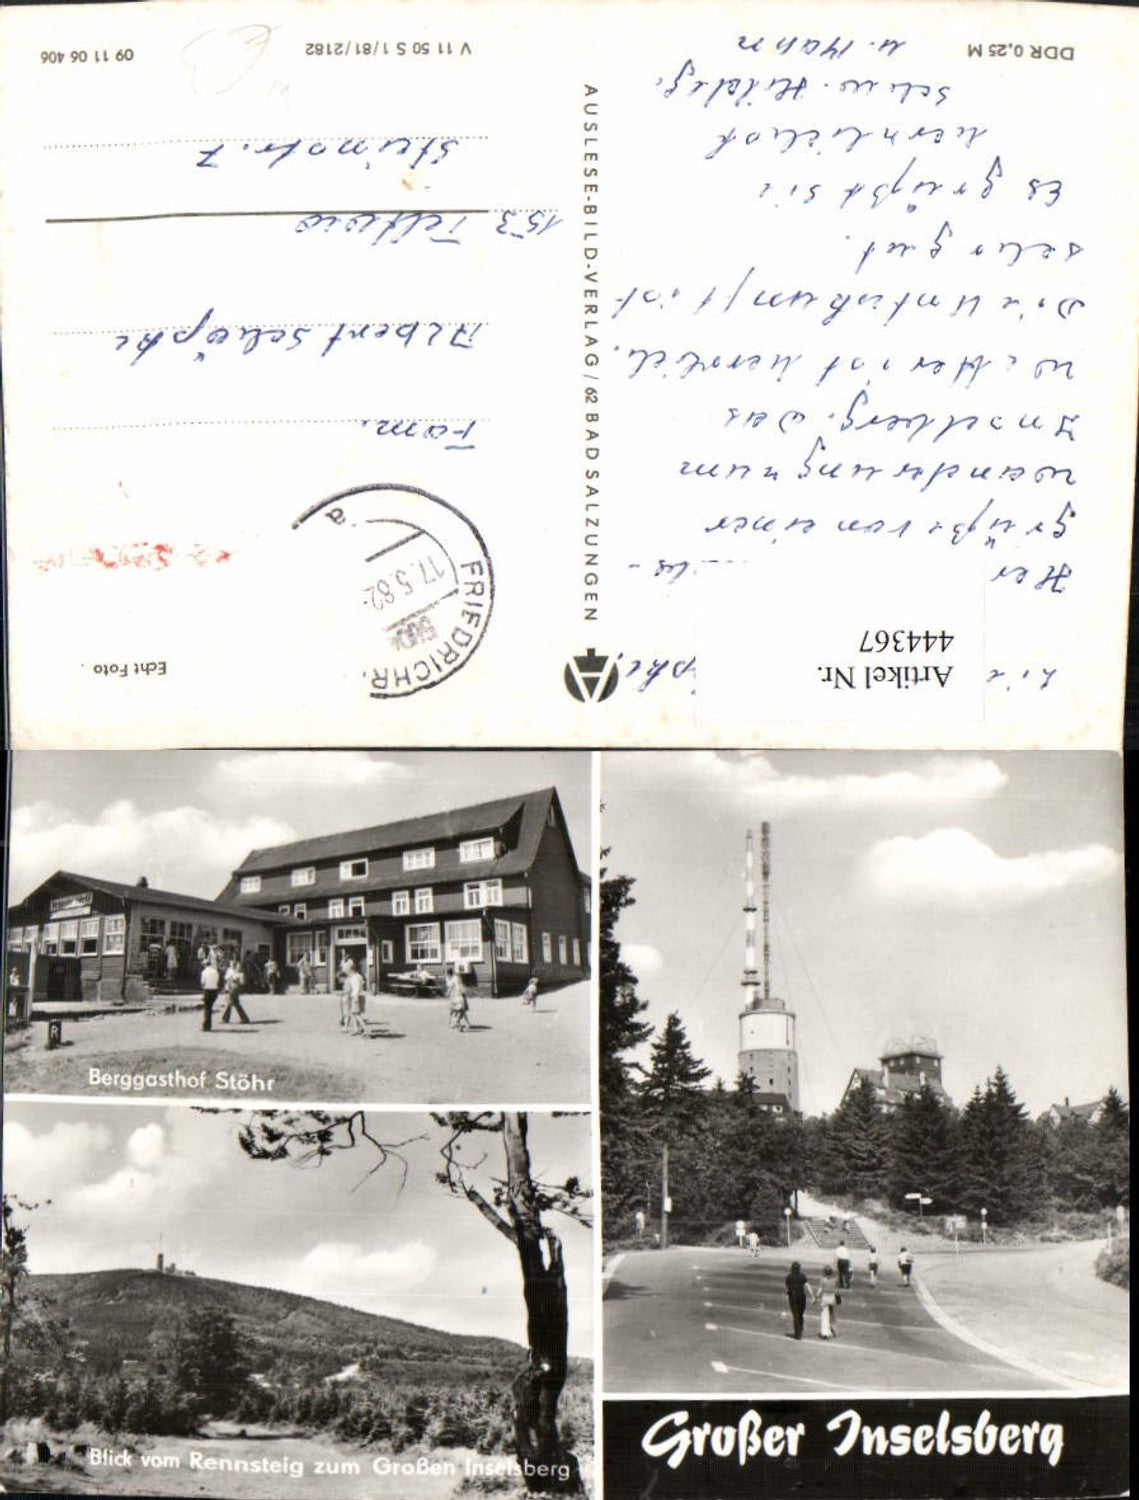 Lie pke!
Artikel Nr.
444367
Her
grüße von einer
wanderung zum
Inselberg. Das
Wetter ist herrlich.
Die Unterkunft ist
sehr gut.
Es grüßt Sie
herzlichst
Schw. Hildeg.
u. Mann
DDR 0,25 M
V 11 50 S 1/81/2182
09 11 06 406
AUSLESE-BILD-VERLAG / 62 BAD SALZUNGEN
Echt Foto
FRIEDRICHR.
17.5.82
a
Fam.
Albert Schöpke
153 Teltow
Steinstr. 7
Berggasthof Stöhr
Blick vom Rennsteig zum Großen Inselsberg
Großer Inselsberg